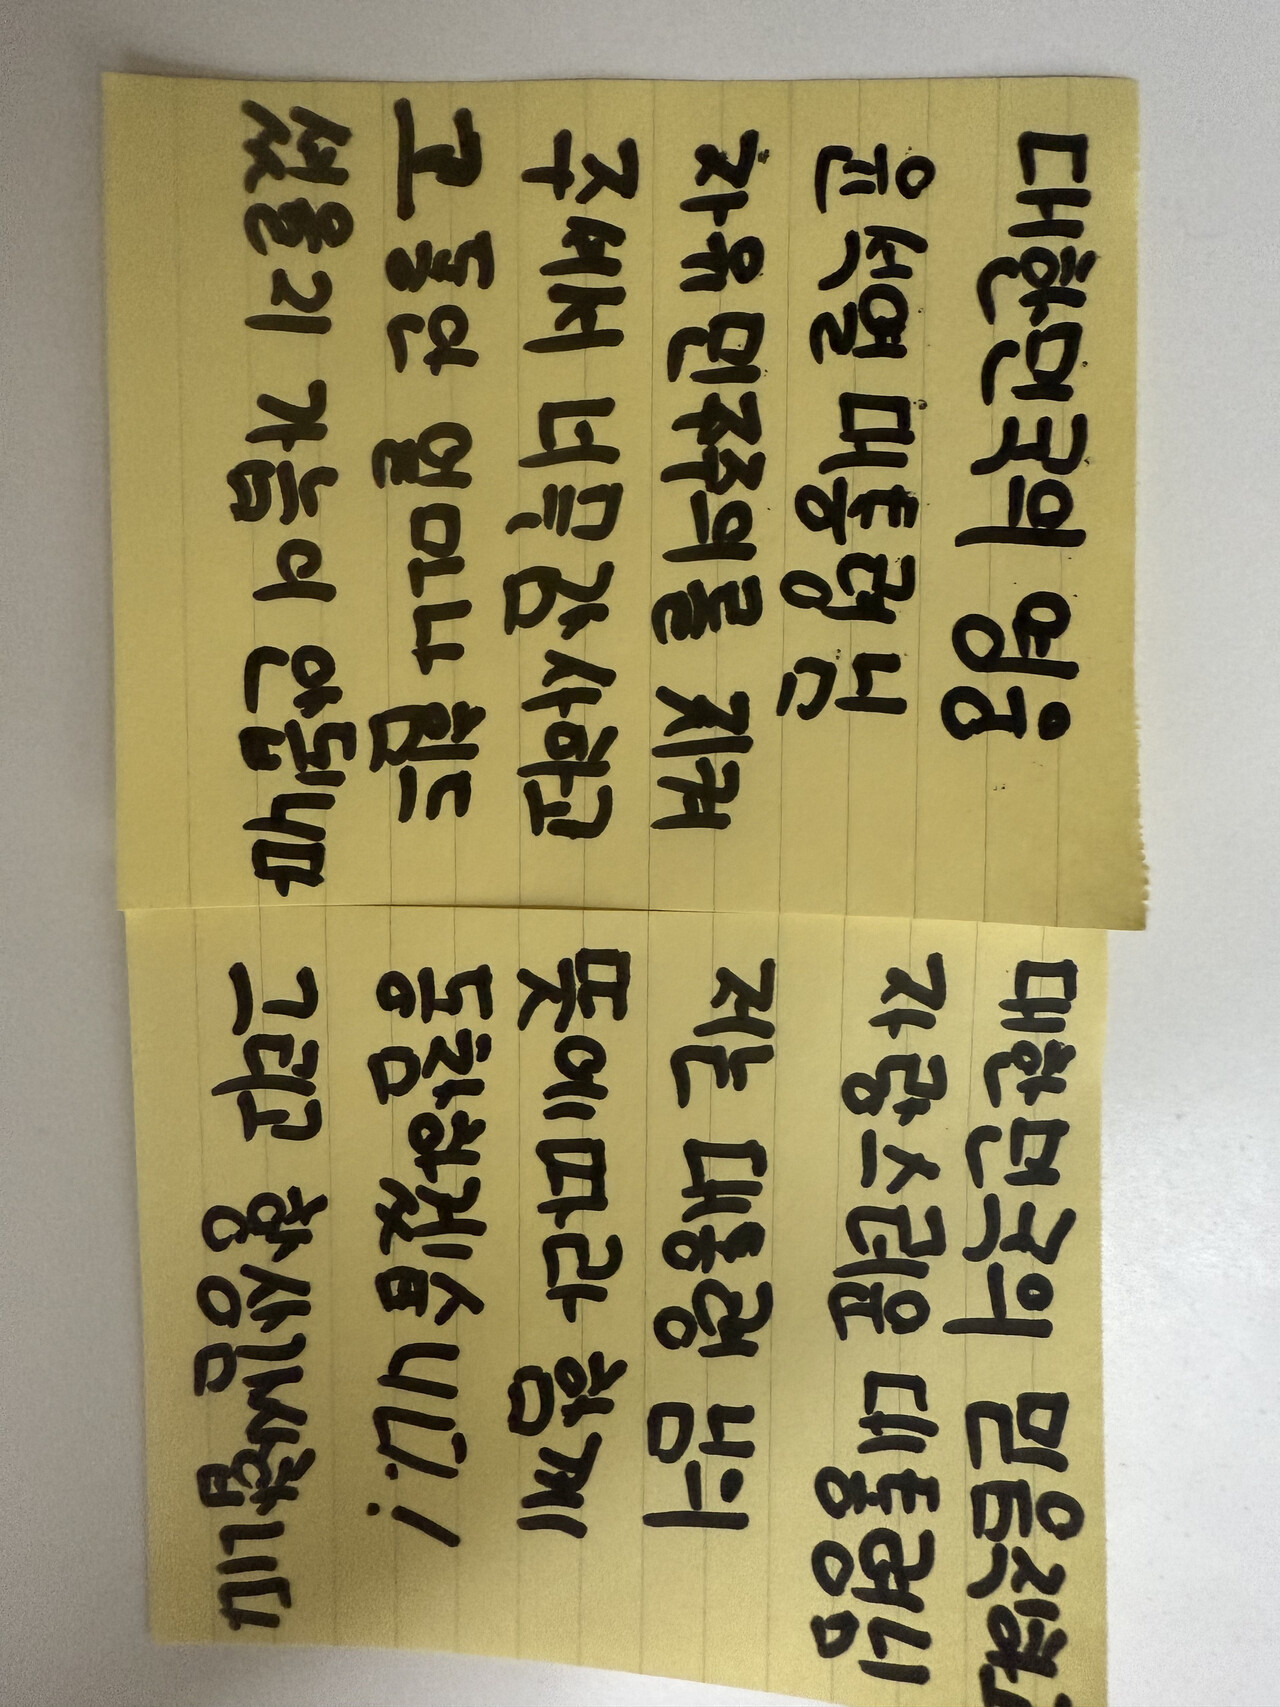 대한민국의 영웅
윤석열 대통령님
자유민주주의를 지켜
주셔서 너무 감사하고
그동안 얼마나 힘드
셨을지 가늠이 안됩니다
대한민국의
자랑스러운 대통령님
저는 대통령 님의
뜻에 따라 함께
동참하겠습니다!
그리고 항상